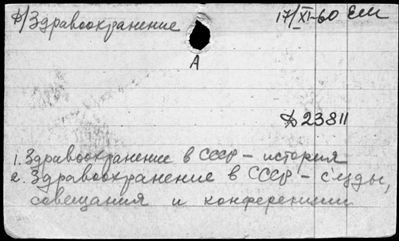 Б/Здравоохранение 17/XI-60 Ем
А
Б 23811
1. Здравоохранение в СССР - история
2. Здравоохранение в СССР - съезды,
совещания и конференции